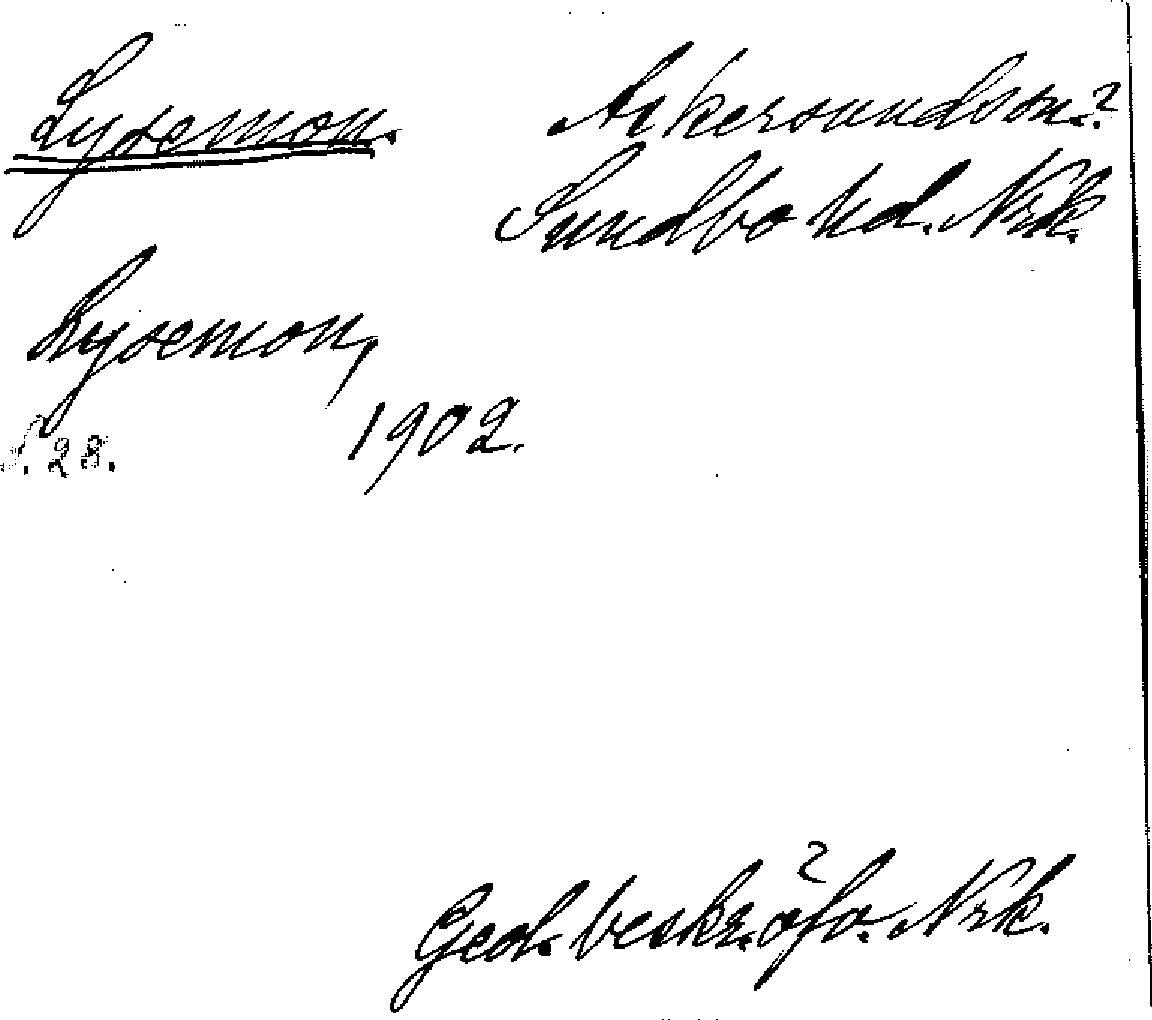 Lysemon. Askersunds sn.
Sundbo hd. Nrk.
Lysemon,
1902.
28.
Geol. beskr. öfv. Nrk.